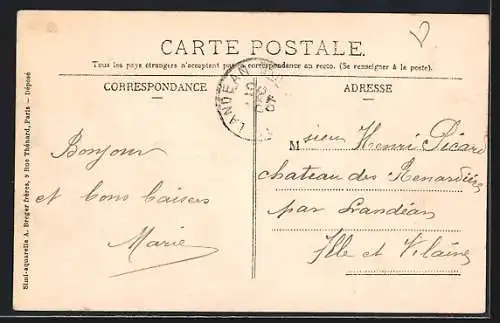 CARTE POSTALE.
Tous les pays étrangers n'acceptent pas la correspondance au recto. (Se renseigner à la poste).
CORRESPONDANCE
LANDEAN
ADRESSE
Bonjour
et bons baisers
Marie
Msieur Henri Picard
chateau des Renardières
par Landéan
Ille et Vilaine
Simi-aquarelle A. Breger frères, 9 Rue Thénard, Paris — Déposé